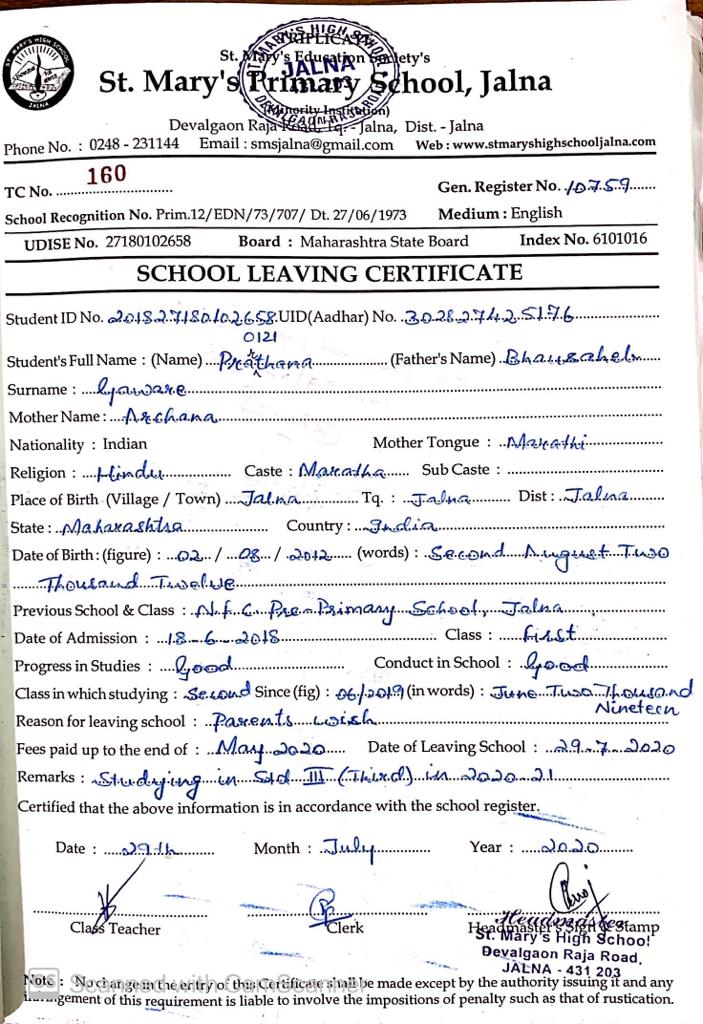 TRIPLICATE
St. Mary's Education Society's
St. Mary's Primary School, Jalna
(Minority Institution)
Devalgaon Raja Road, Tq. - Jalna, Dist. - Jalna
Phone No. : 0248 - 231144 Email : smsjalna@gmail.com Web : www.stmaryshighschooljalna.com
TC No. 160 Gen. Register No. 10759
School Recognition No. Prim.12/EDN/73/707/ Dt. 27/06/1973 Medium : English
UDISE No. 27180102658 Board : Maharashtra State Board Index No. 6101016
SCHOOL LEAVING CERTIFICATE
Student ID No. 201827180102658 UID(Aadhar) No. 302827425176
0121
Student's Full Name : (Name) Prathana (Father's Name) Bhausaheb
Surname : Gaware
Mother Name : Archana
Nationality : Indian Mother Tongue : Marathi
Religion : Hindu Caste : Maratha Sub Caste :
Place of Birth (Village / Town) Jalna Tq. : Jalna Dist : Jalna
State : Maharashtra Country : India
Date of Birth : (figure) : 02 / 08 / 2012 (words) : Second August Two
Thousand Twelve
Previous School & Class : N.f.C. Pre-Primary School, Jalna
Date of Admission : 18-6-2018 Class : first
Progress in Studies : Good Conduct in School : Good
Class in which studying : Second Since (fig) : 06/2019 (in words) : June Two Thousand
Nineteen
Reason for leaving school : Parents wish
Fees paid up to the end of : May 2020 Date of Leaving School : 29-7-2020
Remarks : Studying in Std III (Third) in 2020-21
Certified that the above information is in accordance with the school register.
Date : 29th Month : July Year : 2020
Class Teacher Clerk Headmaster's Sign & Stamp
Headmaster
St. Mary's High School
Devalgaon Raja Road,
JALNA - 431 203
Note : No change in the entry of this Certificate shall be made except by the authority issuing it and any
infringement of this requirement is liable to involve the impositions of penalty such as that of rustication.
Scanned with CamScanner